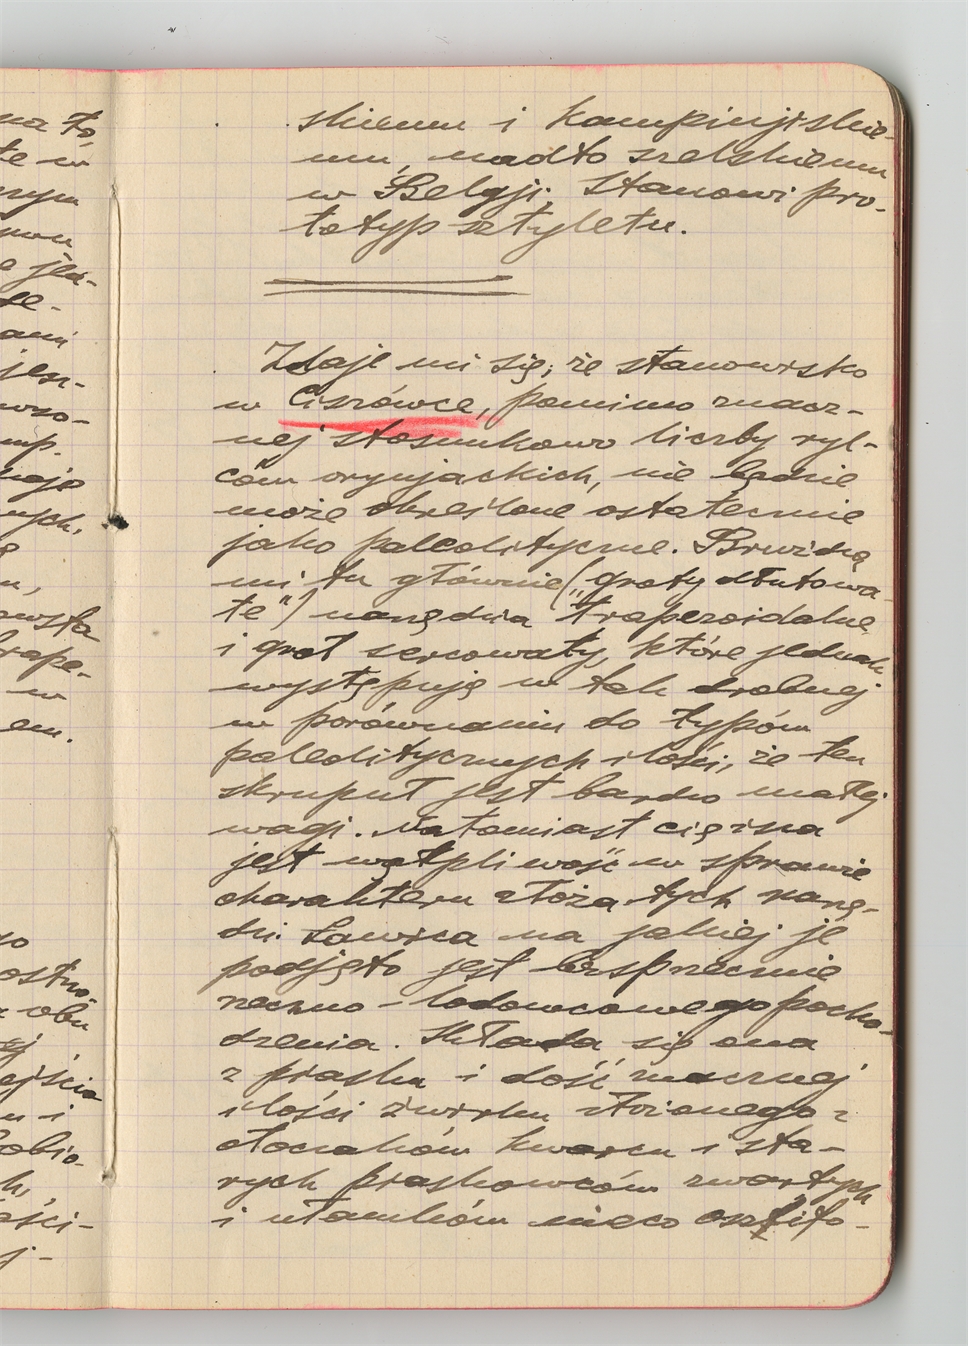 skiemu i kampinjiskie-
mu, nadto szelskiemu
w Belgji; Stanowi pro-
totyp sztyletu.
Zdaje mi się, że stanowisko
w Ciszówce, pomimo znacz-
nej stosunkowo liczby ryl-
ców orynjackich, nie będzie
może określone ostatecznie
jako paleolityczne. Bruździą
mi tu głównie („groty dłutowa-
te") narzędzia trapezoidalne
i grot sercowaty, które jednak
występują w tak drobnej
w porównaniu do typów
paleolitycznych ilości, że ten
skrupuł jest bardzo małej
wagi. Natomiast cięższa
jest wątpliwość w sprawie
charakteru złoża tych narzę-
dzi. Ławica na jakiej je
podjęto jest bezsprzecznie
rzeczno-lodowcowego pocho-
dzenia. Składa się ona
z piasku i dość znacznej
ilości żwirku złożonego z
otoczaków kwarcu i sta-
rych piaskowców zwartych
i ułamków nieco oszlifo-